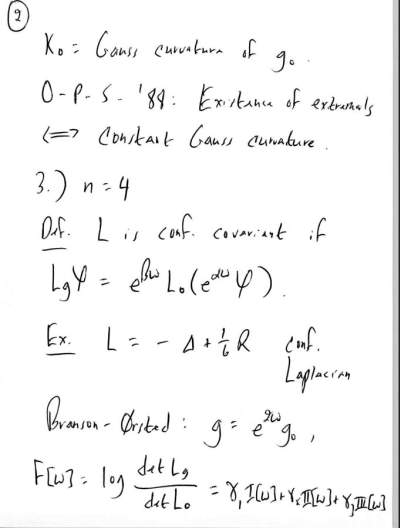 ②
K₀ = Gauss curvature of g₀.
O-P-S- '88: Existence of extremals
⟺ Constant Gauss curvature.
3.) n = 4
Def. L is conf. covariant if
L_g ψ = e^{βω} L₀(e^{αω} ψ).
Ex. L = - Δ + 1/6 R conf.
Laplacian
Branson-Ørsted: g = e^{2ω} g₀,
F[ω] = log det L_g / det L₀ = γ₁ I[ω] + γ₂ II[ω] + γ₃ III[ω]